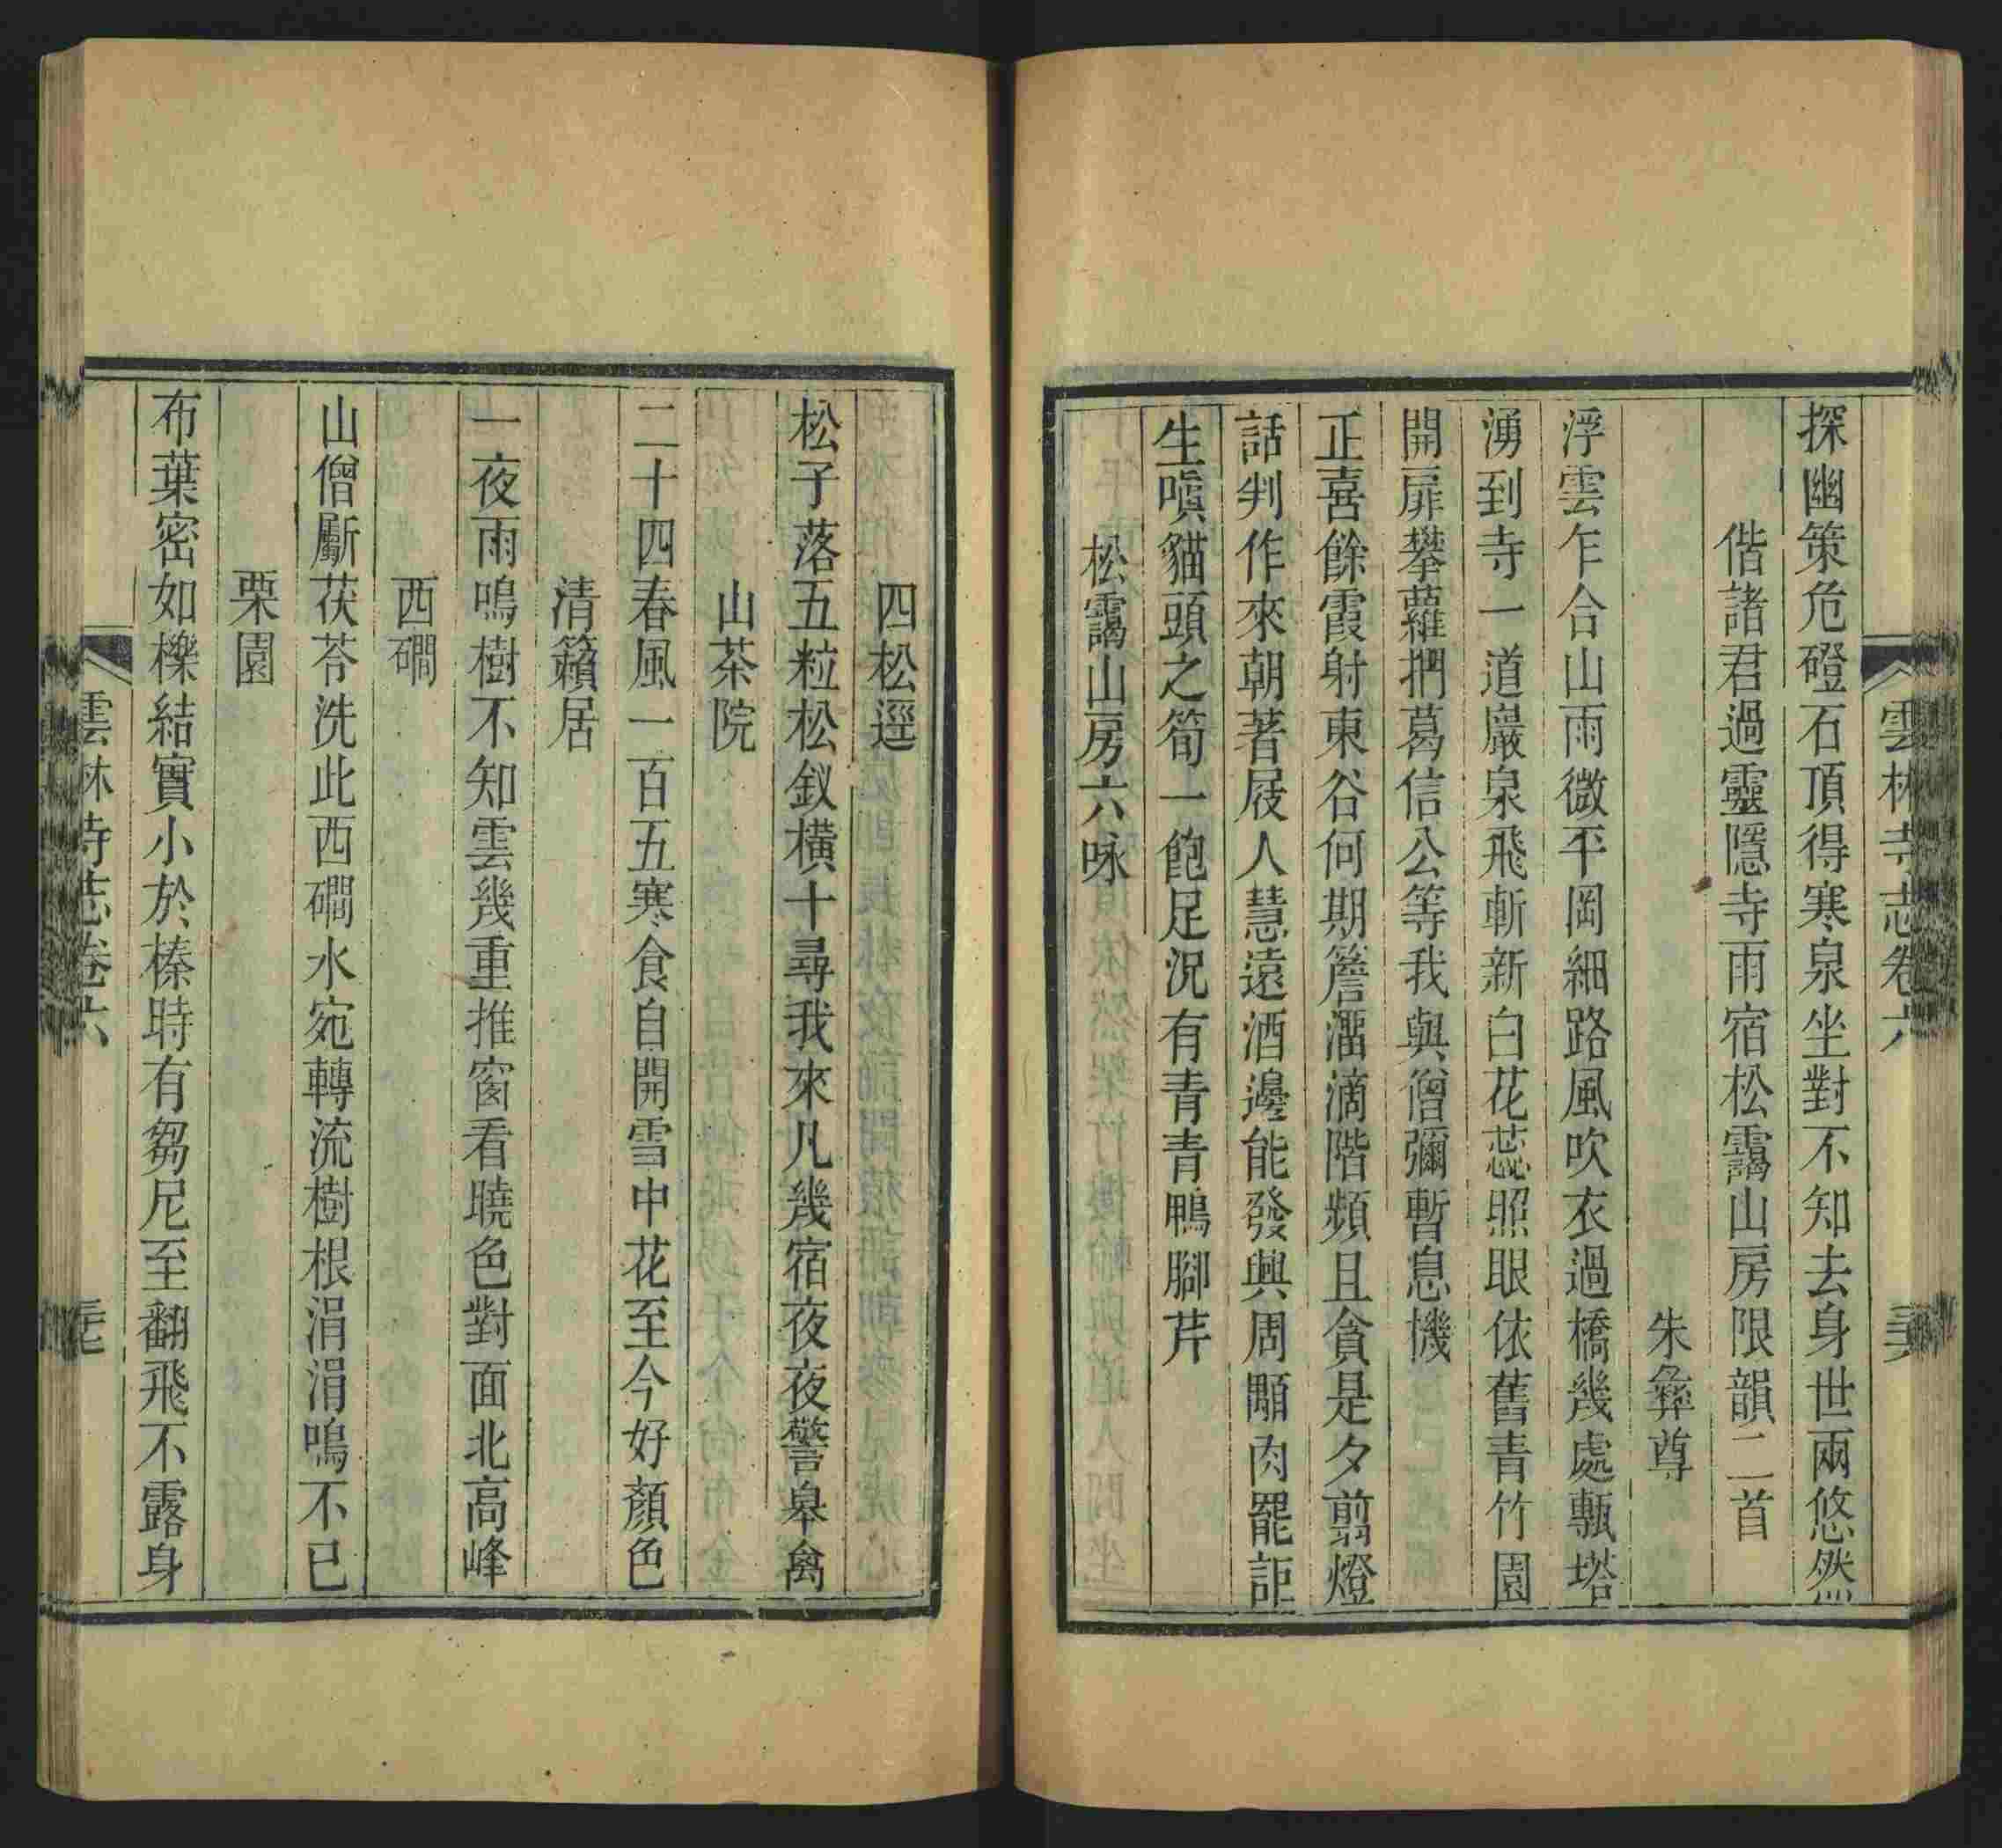 雲林寺志卷六
探幽策危磴石頂得寒泉坐對不知去身世兩悠然
偕諸君過靈隱寺雨宿松靄山房限韻二首
朱彝尊
浮雲乍合山雨微平岡細路風吹衣過橋幾處甎塔
湧到寺一道巖泉飛斬新白花蕊照眼依舊青竹園
開扉攀蘿捫葛信公等我與僧彌暫息機
正喜餘霞射東谷何期簷溜滴階頻且貪是夕翦燈
話判作來朝著屐人慧遠酒邊能發興周顒肉罷詎
生嗔貓頭之筍一飽足況有青青鴨腳芹
松靄山房六咏
四松逕
松子落五粒松釵橫十尋我來凡幾宿夜夜警皋禽
山茶院
二十四春風一百五寒食自開雪中花至今好顏色
清籟居
一夜雨鳴樹不知雲幾重推窗看曉色對面北高峰
西磵
山僧斸茯苓洗此西磵水宛轉流樹根涓涓鳴不已
栗園
布葉密如櫟結實小於榛時有芻尼至翻飛不露身
雲林寺志卷六